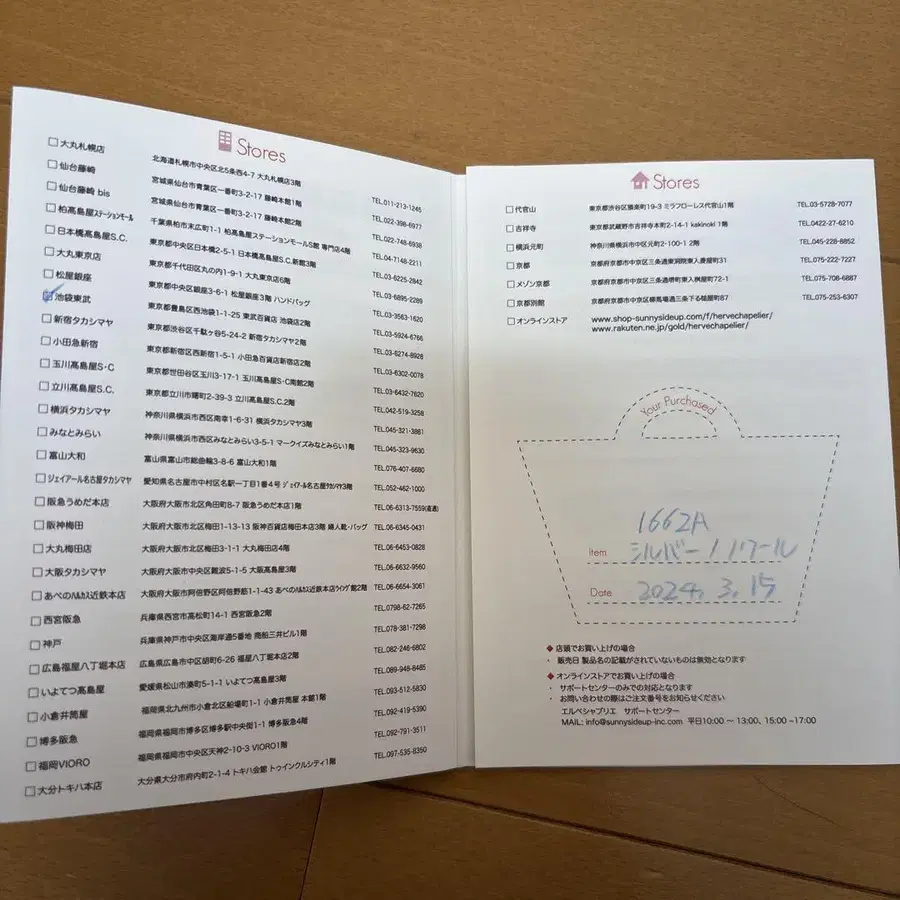 Stores
大丸札幌店 北海道札幌市中央区北5条西4-7 大丸札幌店3階 TEL.011-213-1245
仙台藤崎 宮城県仙台市青葉区一番町3-2-17 藤崎本館1階 TEL.022-398-6977
仙台藤崎 bis 宮城県仙台市青葉区一番町3-2-17 藤崎本館2階 TEL.022-748-6938
柏髙島屋ステーションモール 千葉県柏市末広町1-1 柏髙島屋ステーションモールS館 専門店4階 TEL.04-7148-2211
日本橋髙島屋S.C. 東京都中央区日本橋2-5-1 日本橋髙島屋S.C.新館3階 TEL.03-6225-2842
大丸東京店 東京都千代田区丸の内1-9-1 大丸東京店6階 TEL.03-6895-2289
松屋銀座 東京都中央区銀座3-6-1 松屋銀座3階 ハンドバッグ TEL.03-3563-1620
池袋東武 東京都豊島区西池袋1-1-25 東武百貨店 池袋店2階 TEL.03-5924-6766
新宿タカシマヤ 東京都渋谷区千駄ヶ谷5-24-2 新宿タカシマヤ2階 TEL.03-6274-8928
小田急新宿 東京都新宿区西新宿1-5-1 小田急百貨店新宿店2階 TEL.03-6302-0078
玉川髙島屋S・C 東京都世田谷区玉川3-17-1 玉川髙島屋S・C南館2階 TEL.03-6432-7620
立川髙島屋S.C. 東京都立川市曙町2-39-3 立川髙島屋S.C.2階 TEL.042-519-3258
横浜タカシマヤ 神奈川県横浜市西区南幸1-6-31 横浜タカシマヤ3階 TEL.045-321-3861
みなとみらい 神奈川県横浜市西区みなとみらい3-5-1 マークイズみなとみらい1階 TEL.045-323-9630
富山大和 富山県富山市総曲輪3-8-6 富山大和1階 TEL.076-407-6680
ジェイアール名古屋タカシマヤ 愛知県名古屋市中村区名駅一丁目1番4号 ジェイアール名古屋タカシマヤ3階 TEL.052-462-1000
阪急うめだ本店 大阪府大阪市北区角田町8-7 阪急うめだ本店1階 TEL.06-6313-7559(直通)
阪神梅田 大阪府大阪市北区梅田1-13-13 阪神百貨店梅田本店3階 婦人靴・バッグ TEL.06-6345-0431
大丸梅田店 大阪府大阪市北区梅田3-1-1 大丸梅田店4階 TEL.06-6453-0828
大阪タカシマヤ 大阪府大阪市中央区難波5-1-5 大阪髙島屋3階 TEL.06-6632-9560
あべのハルカス近鉄本店 大阪府大阪市阿倍野区阿倍野筋1-1-43 あべのハルカス近鉄本店ウイング館2階 TEL.06-6654-3061
西宮阪急 兵庫県西宮市高松町14-1 西宮阪急2階 TEL.0798-62-7265
神戸 兵庫県神戸市中央区海岸通5番地 商船三井ビル1階 TEL.078-381-7298
広島福屋八丁堀本店 広島県広島市中区胡町6-26 福屋八丁堀本店2階 TEL.082-246-6802
いよてつ髙島屋 愛媛県松山市湊町5-1-1 いよてつ髙島屋3階 TEL.089-948-6485
小倉井筒屋 福岡県北九州市小倉北区船場町1-1 小倉井筒屋 本館1階 TEL.093-512-5830
博多阪急 福岡県福岡市博多区博多駅中央街1-1 博多阪急4階 TEL.092-419-5390
福岡VIORO 福岡県福岡市中央区天神2-10-3 VIORO1階 TEL.092-791-3511
大分トキハ本店 大分県大分市府内町2-1-4 トキハ会館 トゥインクルシティ1階 TEL.097-535-8350
Stores
代官山 東京都渋谷区猿楽町19-3 ミラフローレス代官山1階 TEL.03-5728-7077
吉祥寺 東京都武蔵野市吉祥寺本町2-14-1 kakinoki 1階 TEL.0422-27-6210
横浜元町 神奈川県横浜市中区元町2-100-1 2階 TEL.045-228-8852
京都 京都府京都市中京区三条通東洞院東入菱屋町31 TEL.075-222-7227
メゾン京都 京都府京都市中京区三条通堺町東入桝屋町72-1 TEL.075-708-6887
京都別館 京都府京都市中京区柳馬場通三条下る槌屋町87 TEL.075-253-6307
オンラインストア www.shop-sunnysideup.com/f/hervechapelier/
www.rakuten.ne.jp/gold/hervechapelier/
Your Purchased
1662A
item シルバー/ノワール
Date 2024. 3. 15
◆ 店頭でお買い上げの場合
・ 販売日 製品名の記載がされていないものは無効となります
◆ オンラインストアでお買い上げの場合
・ サポートセンターのみでの対応となります
・ お問い合わせの際はご注文番号をお知らせください
エルベシャプリエ サポートセンター
MAIL: info@sunnysideup-inc.com 平日10:00 ~ 13:00、15:00 ~17:00